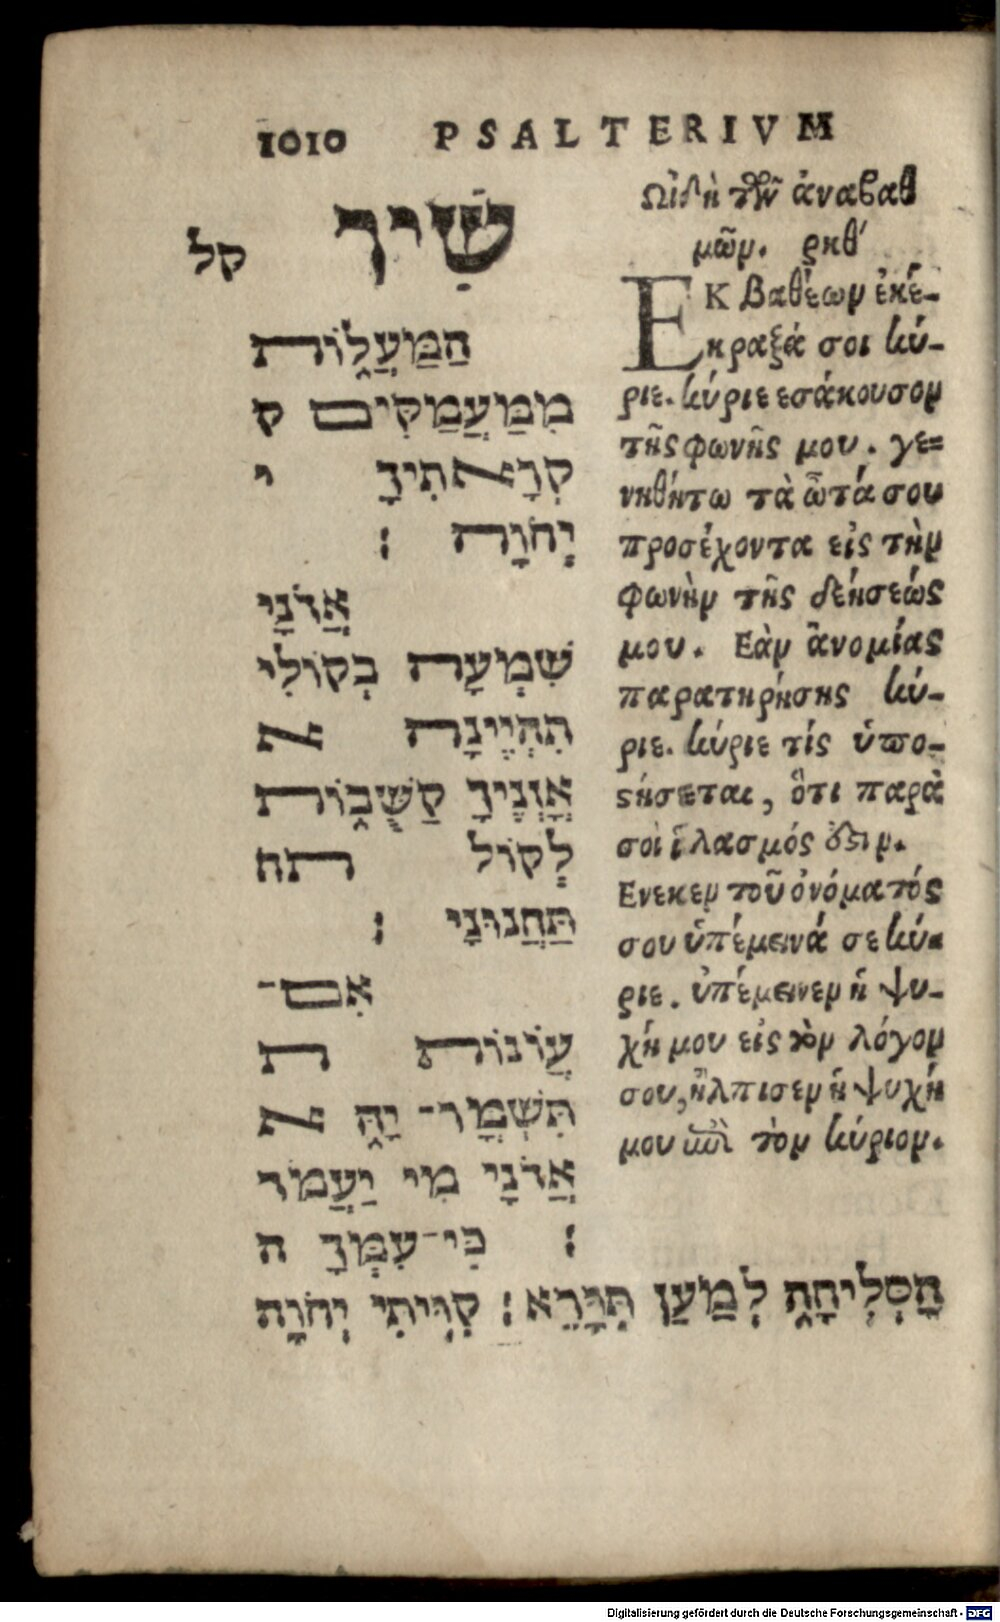 1010 PSALTERIVM
שִׁיר קל
הַמַּעֲלוֹת
מִמַּעֲמַקִּים ק
קְרָאתִיךָ י
יְהֹוָה ׃
אֲדֹנָי
שִׁמְעָה בְקוֹלִי
תִּהְיֶינָה א
אׇזְנֶיךָ קַשֻּׁבוֹת
לְקוֹל תח
תַּחֲנוּנָי ׃
אִם־
עֲוֹנוֹת ת
תִּשְׁמָר־ יָהּ א
אֲדֹנָי מִי יַעֲמֹד
׃ כִּי־עִמְּךָ ה
הַסְּלִיחָה לְמַעַן תִּוָּרֵא ׃ קִוִּיתִי יְהֹוָה
Ωιδὴ τῶν ἀναβαθ
μῶν. ρκθ´
ΕΚ βαθέων ἐκέ-
κραξά σοι κύ-
ριε. κύριε εσάκουσον
τῆς φωνῆς μου. γε=
νηθήτω τὰ ὦτά σου
προσέχοντα εἰς τὴν
φωνὴν τῆς δεήσεώς
μου. Εὰν ἀνομίας
παρατηρήσης κύ-
ριε. κύριε τίς ὑπο-
στήσεται, ὅτι παρὰ
σοὶ ἱλασμός ὅστιν.
Ενεκεν τοῦ ὀνόματός
σου ὑπέμεινά σε κύ=
ριε. ὑπέμεινεν ἡ ψυ-
χή μου εἰς τὸν λόγον
σου, ἤλπισεν ἡ ψυχή
μου ἐπὶ τὸν κύριον.
Digitalisierung gefördert durch die Deutsche Forschungsgemeinschaft - DFG